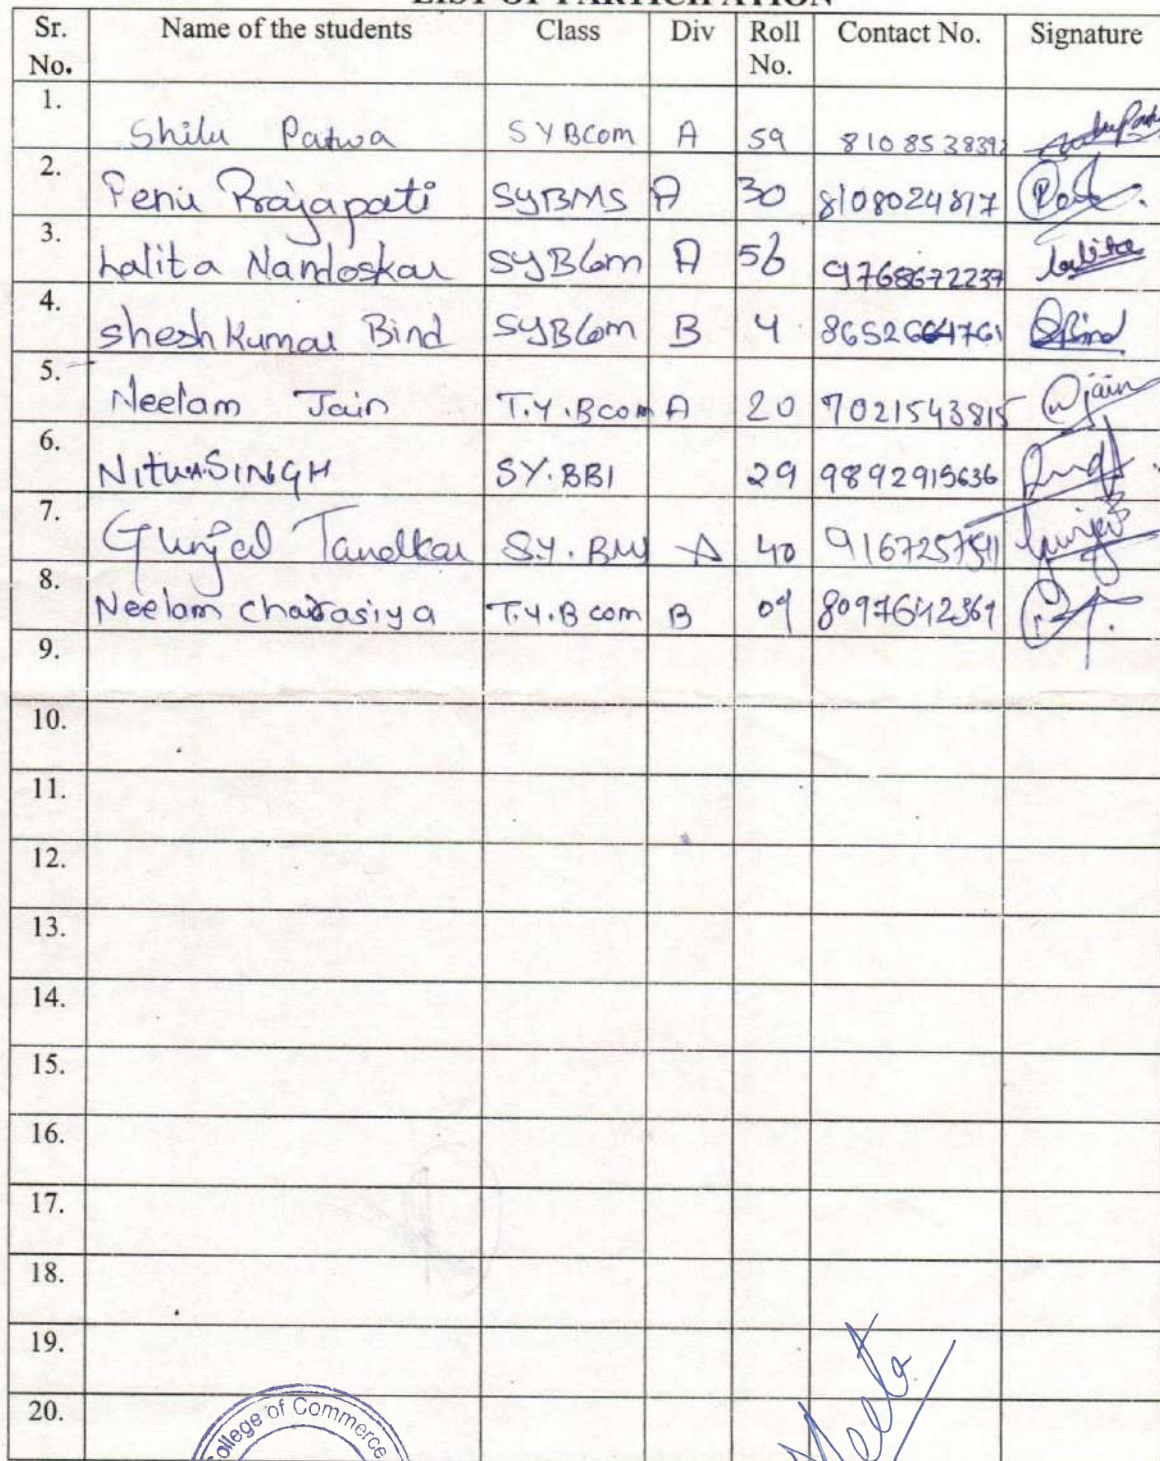 LIST OF PARTICIPATION
Sr. No. Name of the students Class Div Roll No. Contact No. Signature
1. Shilu Patwa SYBCom A 59 8108538392
2. Penu Prajapati SYBMS A 30 8108024817
3. Lalita Nandoskar SYBCom A 56 9768672237 Lalita
4. Shesh Kumar Bind SYBCom B 4 8652664761 SBind
5. Neelam Jain T.Y.Bcom A 20 7021543815 Njain
6. NITU SINGH SY.BBI 29 9892915636
7. Gunjal Tandlkar S.Y.BMS A 40 9167257511 Gunjal
8. Neelam Chaurasiya T.Y.Bcom B 09 8097642361
9.
10.
11.
12.
13.
14.
15.
16.
17.
18.
19.
20.
College of Commerce
Meeta